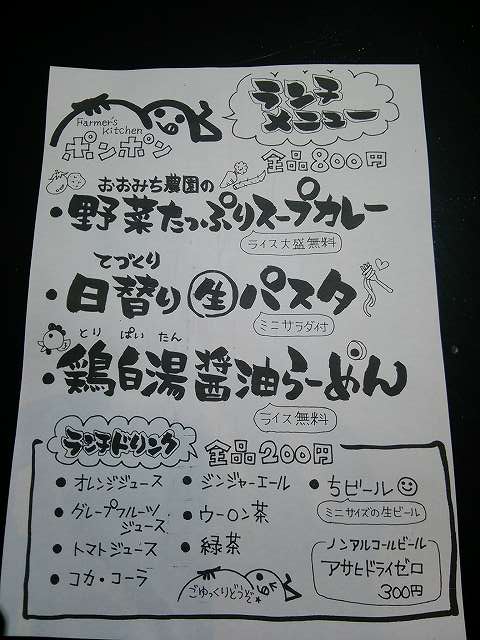 Farmer's
Kitchen
ポンポン
ランチ
メニュー
全品800円
おおみち農園の
・野菜たっぷりスープカレー
ライス大盛無料
てづくり
・日替り生パスタ
ミニサラダ付
とり ぱい たん
・鶏白湯醤油らーめん
ライス無料
ランチドリンク 全品200円
・オレンジジュース
・グレープフルーツ
ジュース
・トマトジュース
・コカ・コーラ
・ジンジャーエール
・ウーロン茶
・緑茶
・ちビール
ミニサイズの生ビール
ノンアルコールビール
アサヒドライゼロ
300円
ごゆっくりどうぞ